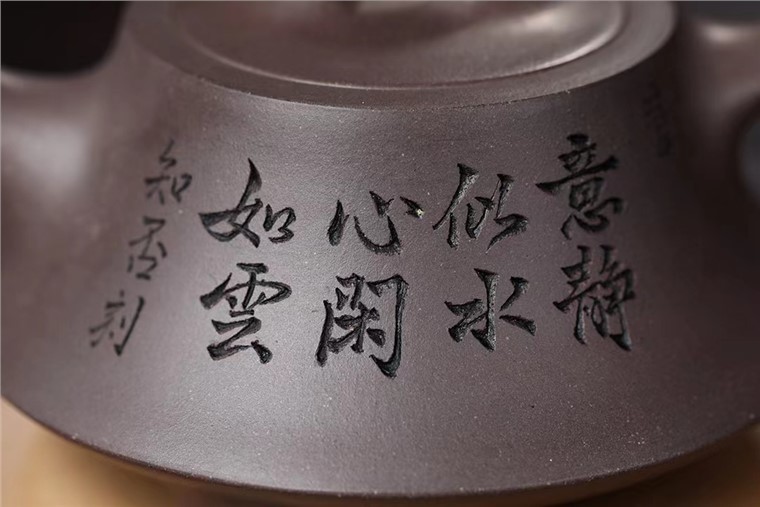 意静
似水
心閑
如雲
知否刻